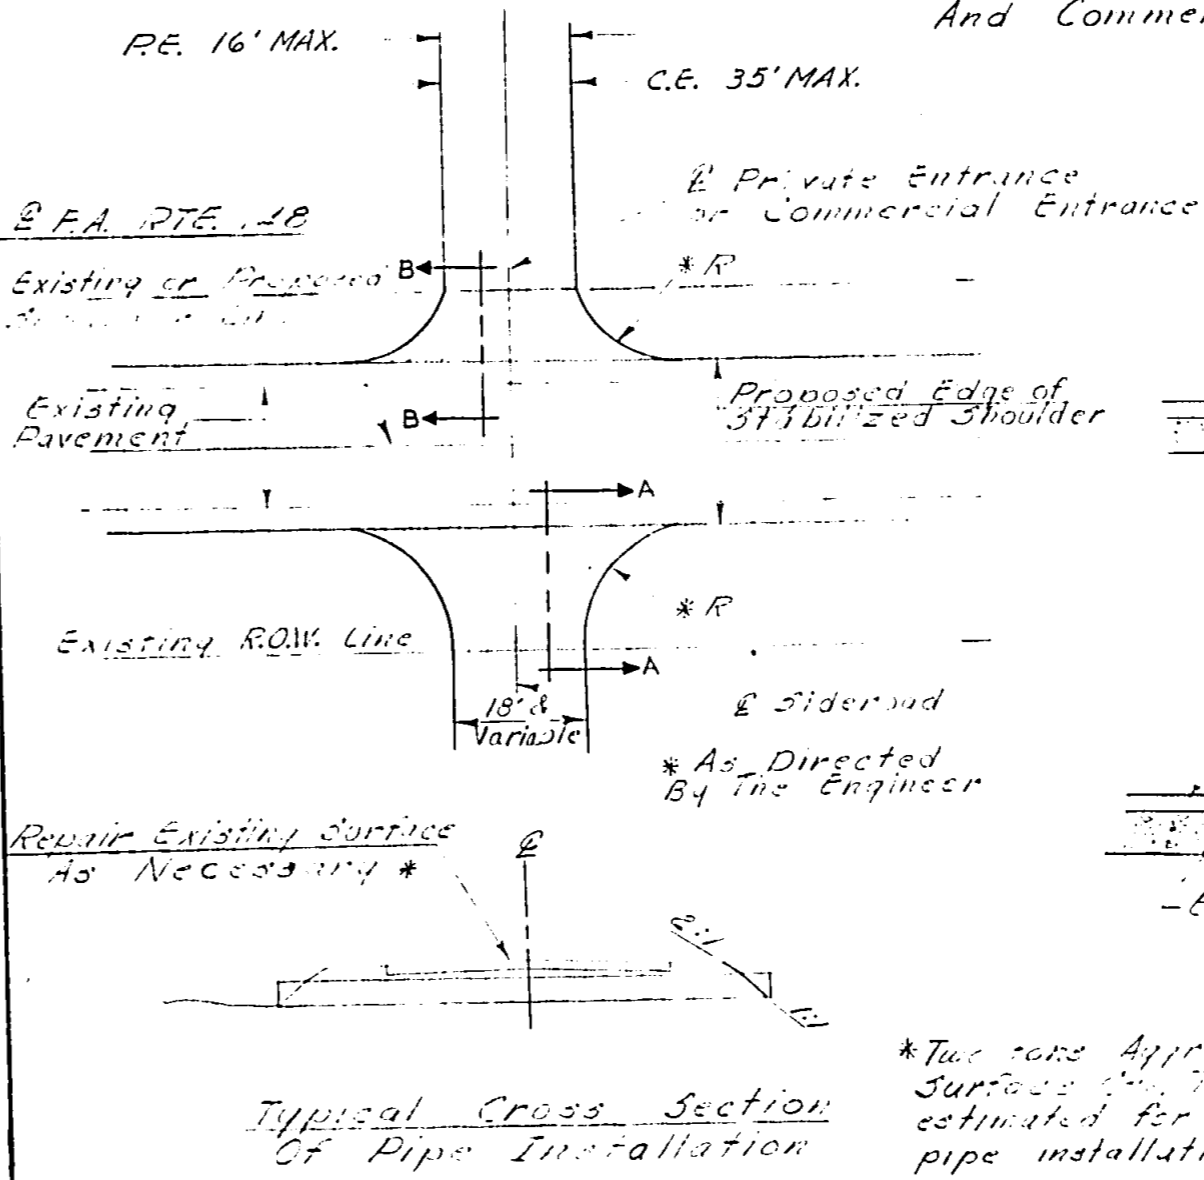 And Commer
P.E. 16' MAX.
C.E. 35' MAX.
℄ Private Entrance
or Commercial Entrance
℄ F.A. RTE.
Existing or Proposed
B
* R
Existing
Pavement
B
Proposed Edge of
Stabilized Shoulder
A
* R
Existing R.O.W. Line
A
18' &
Variable
℄ Sideroad
* As Directed
By The Engineer
Repair Existing Surface
As Necessary *
℄
2:1
1:1
* Two tons Aggr
Surface
estimated for
pipe installati
Typical Cross Section
Of Pipe Installation